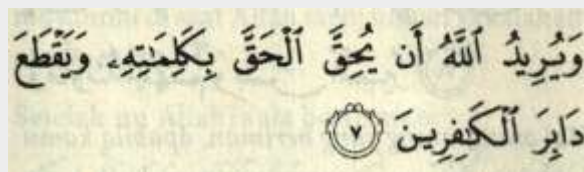 وَيُرِيدُ ٱللَّهُ أَن يُحِقَّ ٱلْحَقَّ بِكَلِمَٰتِهِۦ وَيَقْطَعَ
دَابِرَ ٱلْكَٰفِرِينَ ٧